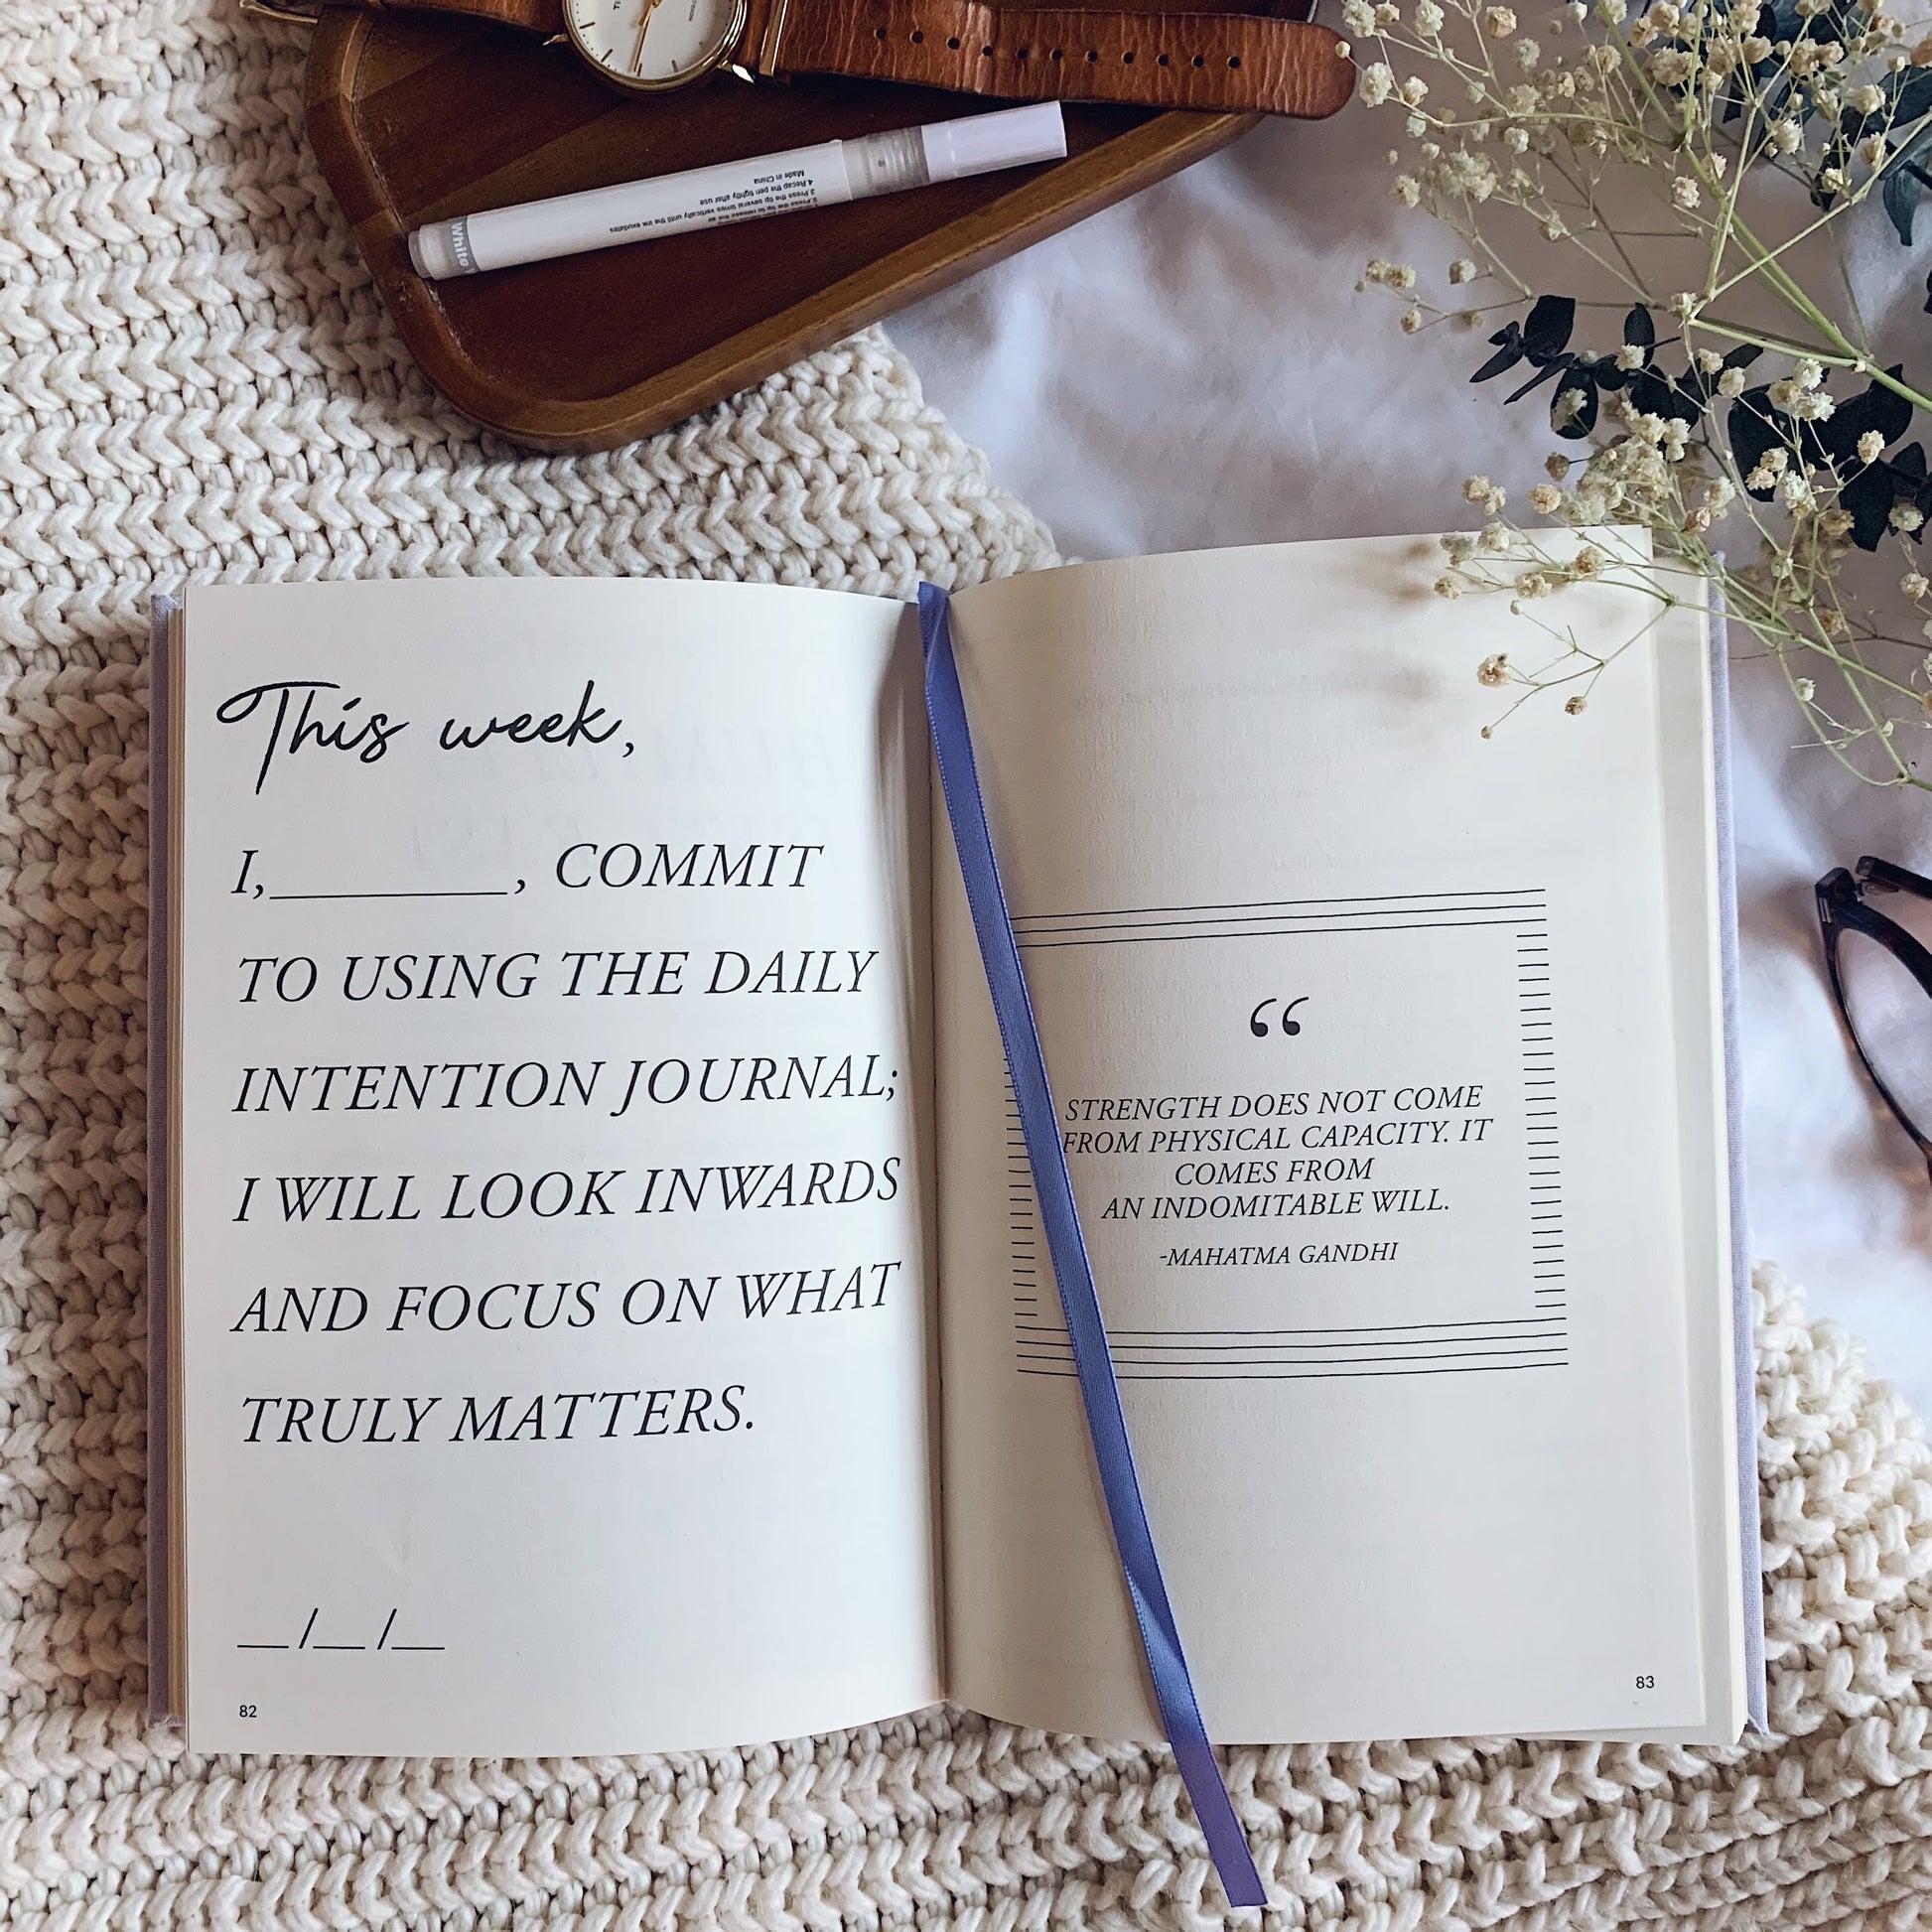 White
1 
2.Press the tip to release the air
3.Press the tip several times vertically until the ink exudates
4.Recap the pen tightly after use
Made in China
This week,
I,________, COMMIT
TO USING THE DAILY
INTENTION JOURNAL;
I WILL LOOK INWARDS
AND FOCUS ON WHAT
TRULY MATTERS.
__/__/__
82
“
STRENGTH DOES NOT COME
FROM PHYSICAL CAPACITY. IT
COMES FROM
AN INDOMITABLE WILL.
-MAHATMA GANDHI
83